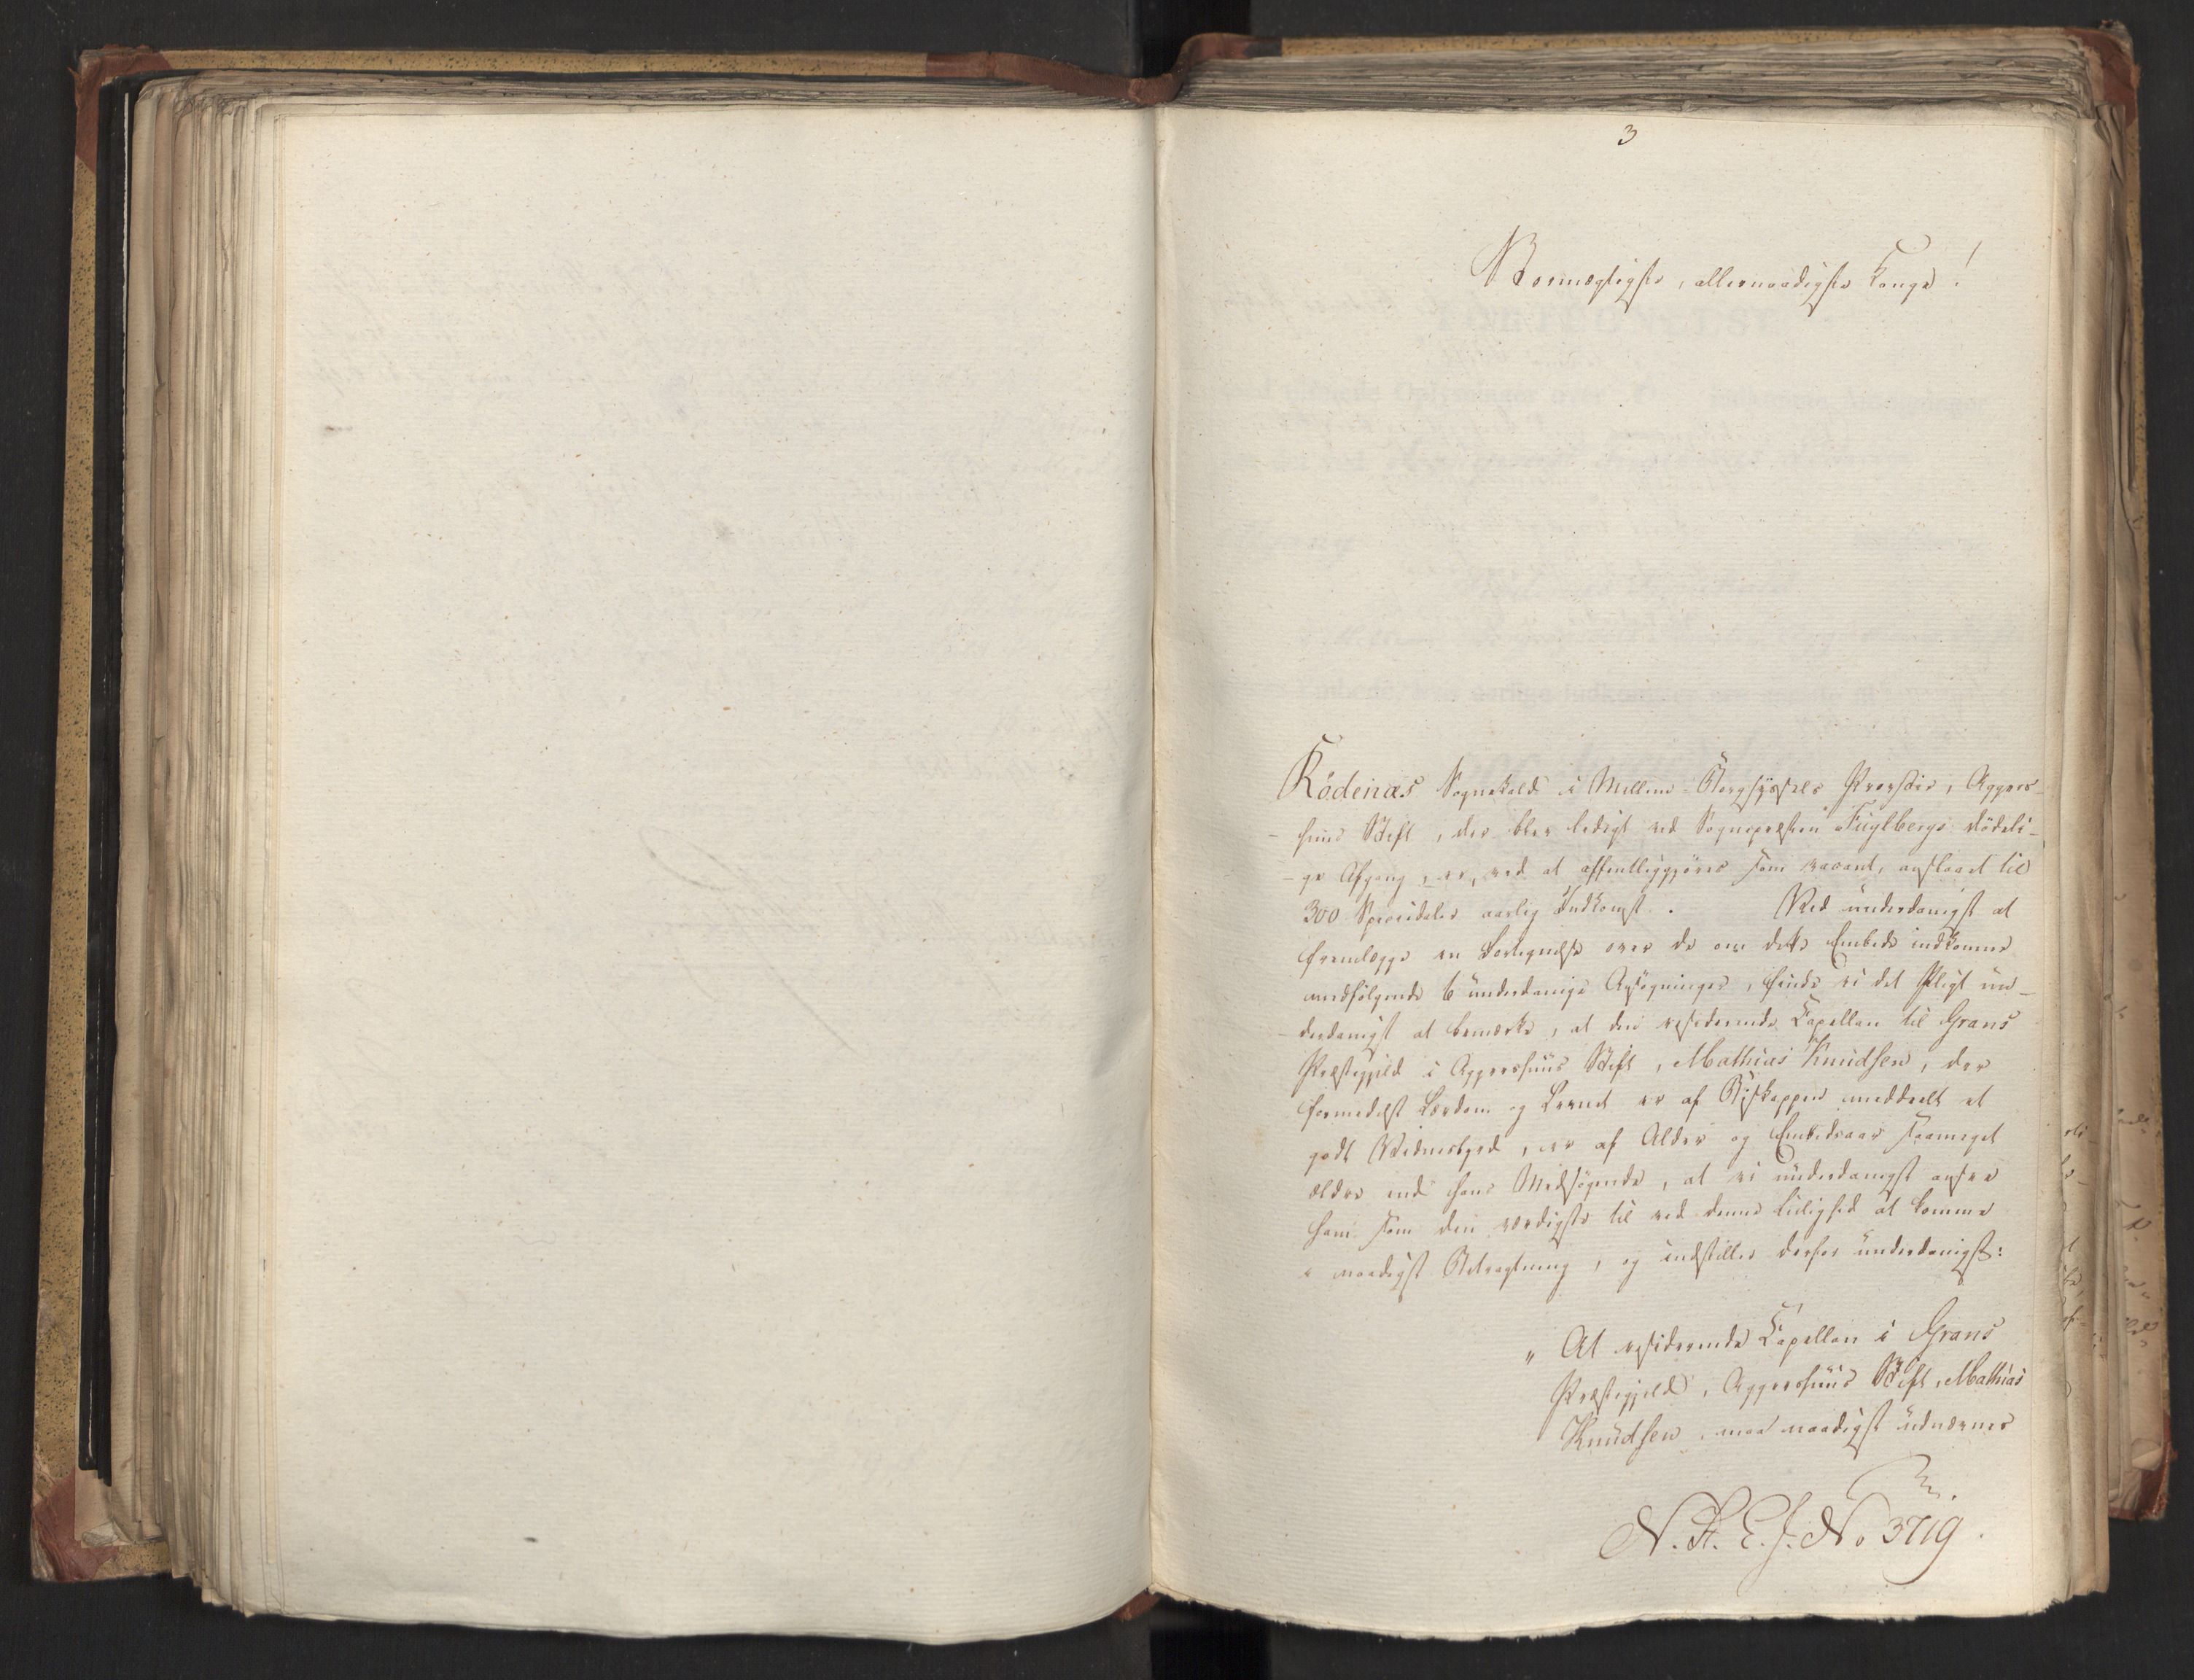 3
Stormægtigste, allernaadigste Konge!
Rödenæs Sognekald i Mellem-Borgsyssels Provstie, Aggers-
-huus Stift, der blev ledigt ved Sognepræsten Fuglbergs dödeli-
-ge Afgang, er, ved at offentliggjöres som vacant, anslaaet til
300 Speciedaler aarlig Indkomst. Ved underdanigst at
fremlægge en Fortegnelse over de om dette Embede indkomne
medfölgende 6 underdanige Ansögninger, finde vi det Pligt un-
-derdanigst at bemærke, at den residerende Capellan til Grans
Præstegjeld i Aggershuus Stift, Mathias Knudsen, der
formedelst Lærdom og Levnet er af Biskoppen meddeelt et
godt Vidnesbyrd, er af Alder og Embedsaar saameget
ældre end hans Medsögende, at vi underdanigst ansee
ham som den værdigste til ved denne Leilighed at komme
i naadigst Betragtning, og indstiller derfor underdanigst:
„ At residerende Capellan i Grans
Præstegjeld, Aggershuus Stift, Mathias
Knudsen, maa naadigst udnævnes
N. St. E. J. No 3719.